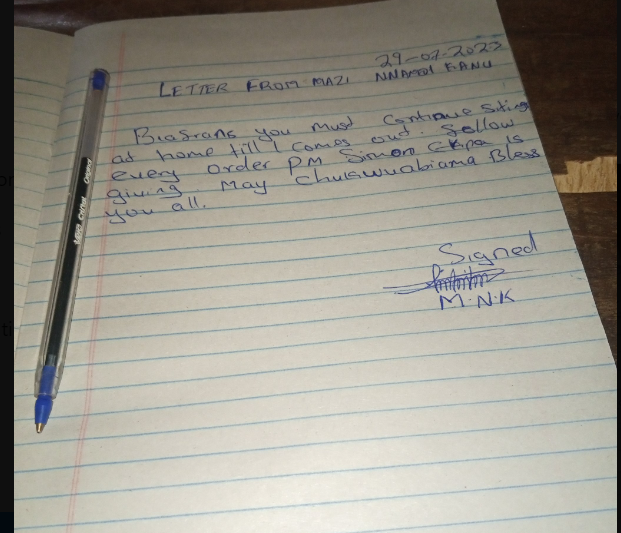 29-07-2023
LETTER FROM MAZI NNAMDI KANU
Biafrans you must continue siting
at home till I comes out. follow
every order PM Simon Ekpa is
giving. May Chukwuabiama Bless
you all.
Signed
M.N.K